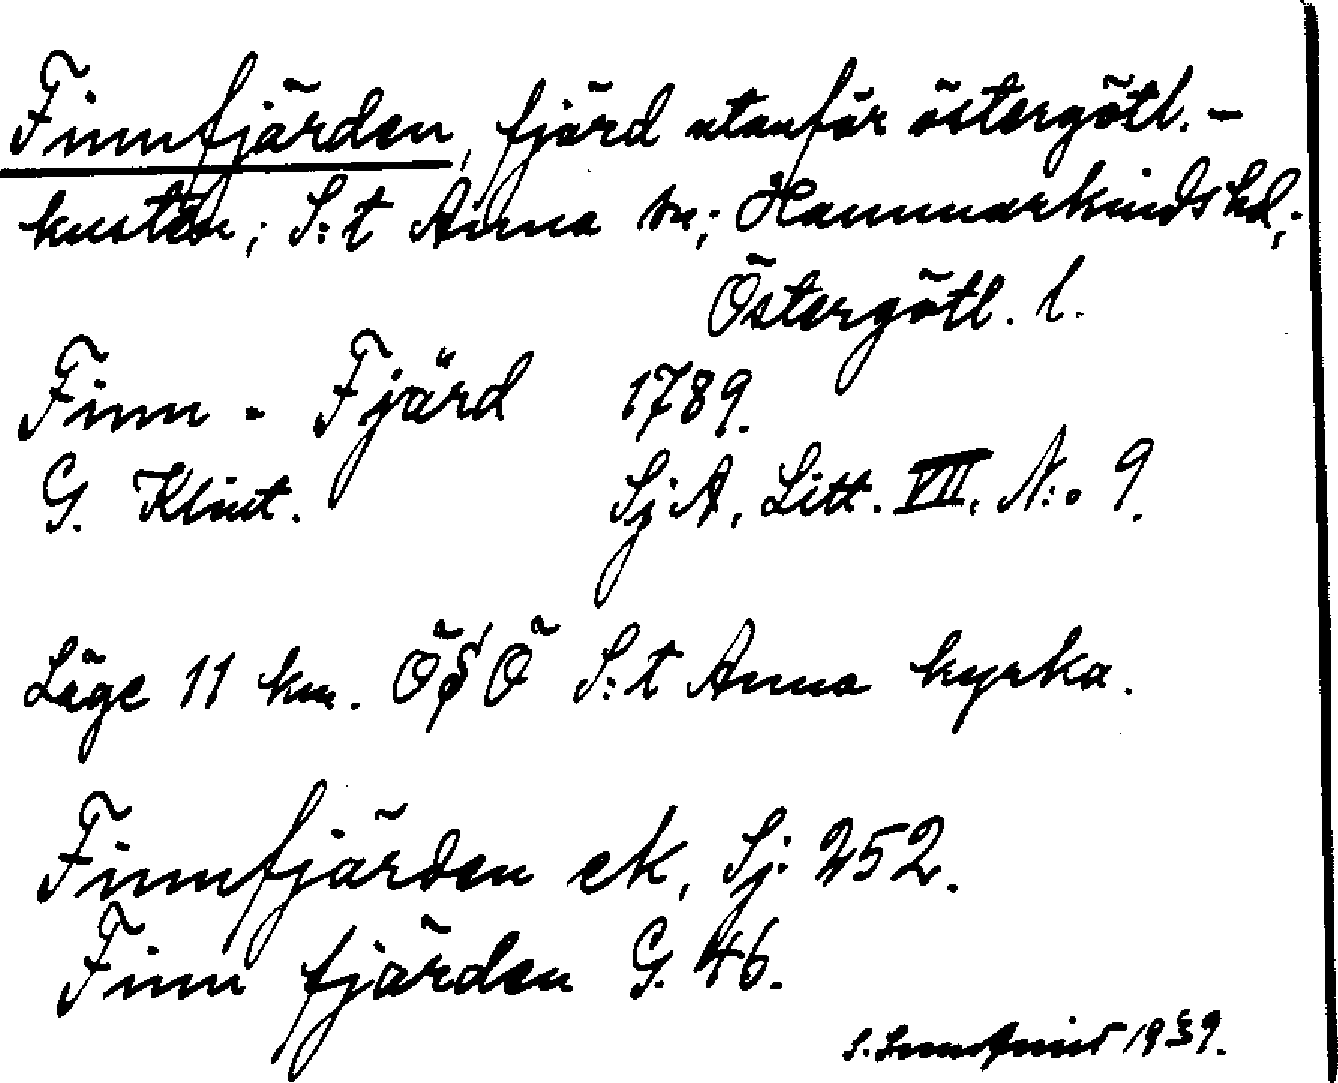 Finnfjärden, fjärd utanför östergötl.-
kusten; S:t Anna sn; Hammarkinds hd;
Östergötl. l.
Finn - Fjärd 1789.
G. Klint. SjA, Litt. VII. N:o 9.
Läge 11 km. ÖSÖ S:t Anna kyrka.
Finnfjärden ek, Sj. 252.
Finn fjärden G. 46.
S. 1939.